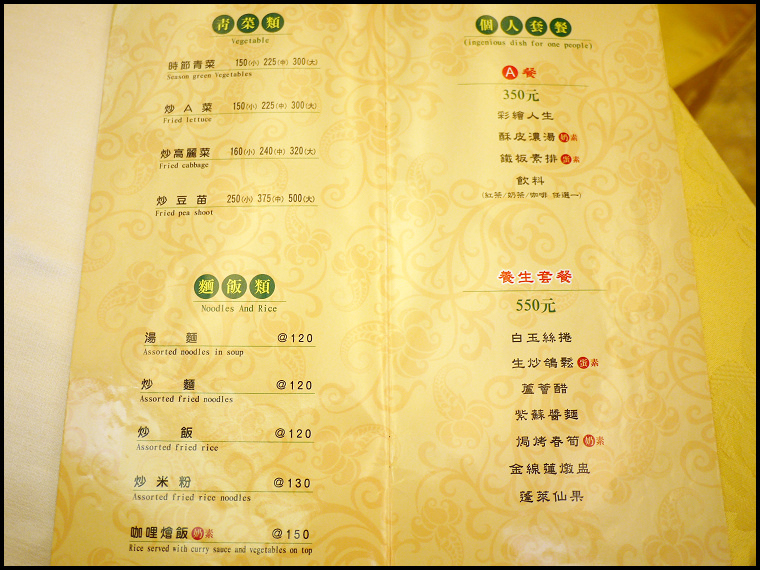 青菜類
Vegetable
時節青菜 150(小) 225(中) 300(大)
Season green Vegetables
炒A菜 150(小) 225(中) 300(大)
Fried lettuce
炒高麗菜 160(小) 240(中) 320(大)
Fried cabbage
炒豆苗 250(小) 375(中) 500(大)
Fried pea shoot
麵飯類
Noodles And Rice
湯麵 @120
Assorted noodles in soup
炒麵 @120
Assorted fried noodles
炒飯 @120
Assorted fried rice
炒米粉 @130
Assorted fried rice noodles
咖哩燴飯 奶素 @150
Rice served with curry sauce and vegetables on top
個人套餐
(ingenious dish for one people)
A餐
350元
彩繪人生
酥皮濃湯 奶素
鐵板素排 蛋素
飲料
(紅茶/奶茶/咖啡 任選一)
養生套餐
550元
白玉絲捲
生炒鴿鬆 蛋素
蘆薈醋
紫蘇醬麵
焗烤春筍 奶素
金線蓮燉盅
蓬萊仙果